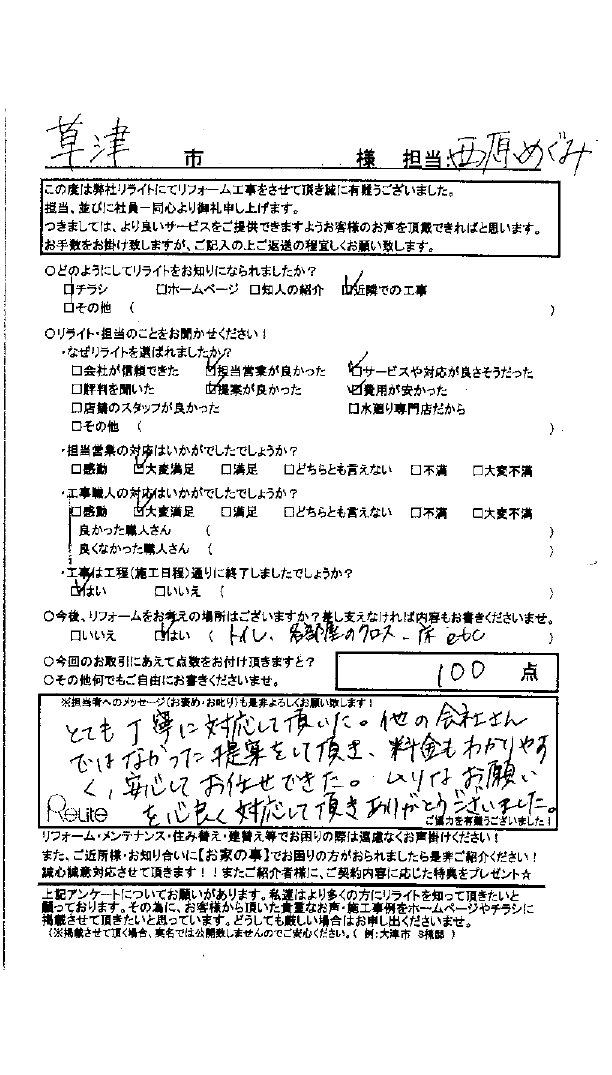 草津 市 様 担当:西原めぐみ
この度は弊社リライトにてリフォーム工事をさせて頂き誠に有難うございました。
担当、並びに社員一同心より御礼申し上げます。
つきましては、より良いサービスをご提供できますようお客様のお声を頂戴できればと思います。
お手数をお掛け致しますが、ご記入の上ご返送の程宜しくお願い致します。
○どのようにしてリライトをお知りになられましたか?
□チラシ □ホームページ □知人の紹介 ☑近隣での工事
□その他 ( )
○リライト・担当のことをお聞かせください!
・なぜリライトを選ばれましたか?
□会社が信頼できた ☑担当営業が良かった ☑サービスや対応が良さそうだった
□評判を聞いた ☑提案が良かった ☑費用が安かった
□店舗のスタッフが良かった □水廻り専門店だから
□その他 ( )
・担当営業の対応はいかがでしたでしょうか?
□感動 ☑大変満足 □満足 □どちらとも言えない □不満 □大変不満
・工事職人の対応はいかがでしたでしょうか?
□感動 ☑大変満足 □満足 □どちらとも言えない □不満 □大変不満
良かった職人さん ( )
良くなかった職人さん ( )
・工事は工程(施工日程)通りに終了しましたでしょうか?
☑はい □いいえ ( )
○今後、リフォームをお考えの場所はございますか?差し支えなければ内容もお書きくださいませ。
□いいえ ☑はい ( トイレ、各部屋のクロス、床 etc )
○今回のお取引にあえて点数をお付け頂きますと? 100 点
○その他何でもご自由にお書きくださいませ。
※担当者へのメッセージ(お褒め・お叱り)も是非よろしくお願い致します!
とても丁寧に対応して頂いた。他の会社さん
ではなかった提案をして頂き、料金もわかりやす
く、安心してお任せできた。ムリなお願い
を心良く対応して頂きありがとうございました。
ReLite ご協力を有難うございました!
リフォーム・メンテナンス・住み替え・建替え等でお困りの際は遠慮なくお声掛けください!
また、ご近所様・お知り合いに【お家の事】でお困りの方がおられましたら是非ご紹介ください!
誠心誠意対応させて頂きます!!またご紹介者様に、ご契約内容に応じた特典をプレゼント☆
上記アンケートについてお願いがあります。私達はより多くの方にリライトを知って頂きたいと
願っております。その為に、お客様から頂いた貴重なお声・施工事例をホームページやチラシに
掲載させて頂きたいと思っています。どうしても厳しい場合はお申し出くださいませ。
(※掲載させて頂く場合、実名では公開致しませんのでご安心ください。( 例:大津市 S様邸 )